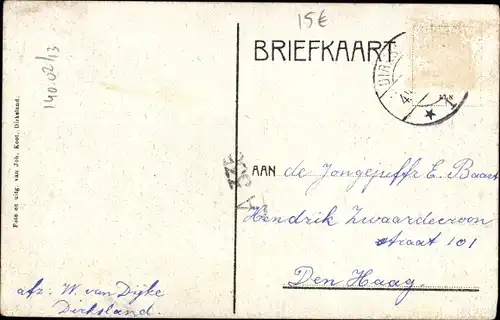 15€
BRIEFKAART
140.02/13
Foto en uitg. van Joh. Koot, Dirksland.
AAN de Jongejuffr E. Baart
Hendrik Zwaardecroon
straat 101
Den Haag.
afz. W. van Dijke
Dirksland.